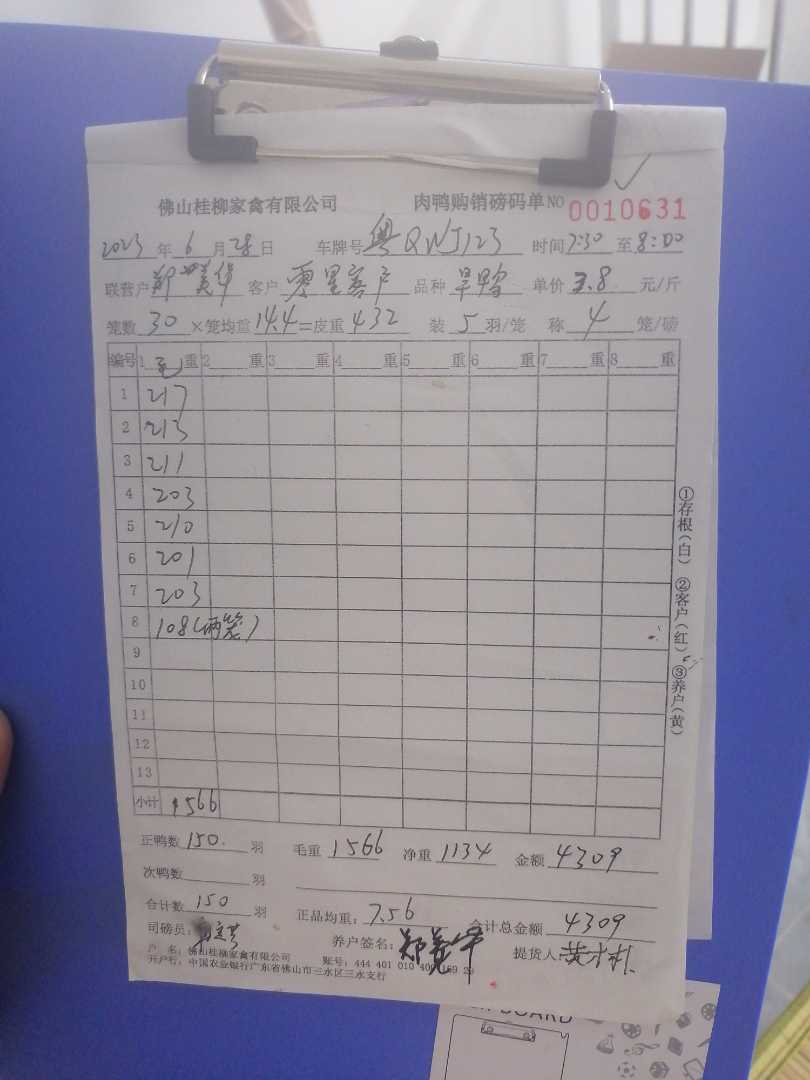 佛山桂柳家禽有限公司 肉鸭购销磅码单 NO 0010631
2023 年 6 月 28 日 车牌号 粤QWJ123 时间 7:30 至 8:00
联营户 郑美华 客户 零星客户 品种 旱鸭 单价 3.8 元/斤
笼数 30 ×笼均重 14.4 =皮重 432 装 5 羽/笼 称 4 笼/磅
编号 1 毛 重 2 重 3 重 4 重 5 重 6 重 7 重 8 重
1 217
2 213
3 211
4 203
5 210
6 201
7 203
8 108(两笼)
9
10
11
12
13
小计 1566
①存根(白) ②客户(红) ③养户(黄)
正鸭数 150. 羽 毛重 1566 净重 1134 金额 4309
次鸭数 羽
合计数 150 羽 正品均重: 7.56 合计总金额 4309
司磅员: 养户签名: 郑美华 提货人:
户 名: 佛山桂柳家禽有限公司 账号: 444 401 010 400
开户行: 中国农业银行广东省佛山市三水区三水支行
BOARD